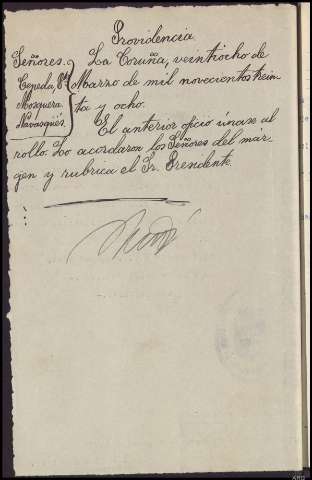 Providencia
Señores.
Ceneda, Pte
Mosquera
Navasqüés
La Coruña, veintiocho de
Marzo de mil novecientos trein
ta y ocho.
El anterior oficio únase al
rollo. Lo acordaron los Señores del már-
gen y rubrica el Sr. Presidente.